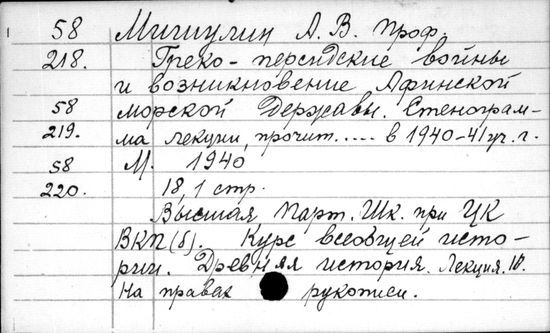 58 Мишулин А. В. проф.
218. Греко-персидские войны
и возникновение Афинской
58 морской Державы. Стенограм-
219. ма лекции, прочит..... в 1940-41 уч. г.
58 М. 1940
220. 18, 1 стр.
Высшая Парт. Шк. при ЦК
ВКП(б). Курс всеобщей исто-
рии. Древняя история. Лекция. 10.
На правах рукописи.